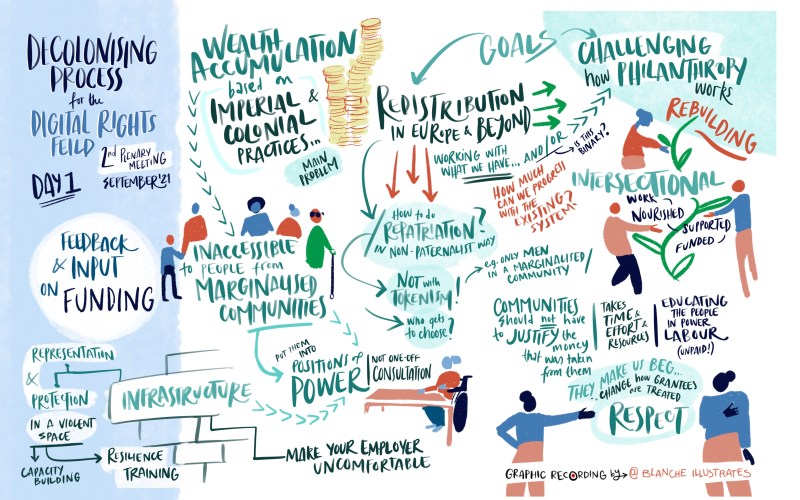 DECOLONISING
PROCESS
for the
DIGITAL RIGHTS
FEILD
2nd PLENARY
MEETING
DAY 1
SEPTEMBER '21
FEEDBACK
& INPUT
ON FUNDING
REPRESENTATION
&
PROTECTION
IN A VIOLENT
SPACE
CAPACITY
BUILDING
RESILIENCE
TRAINING
INFRASRUCTURE
MAKE YOUR EMPLOYER
UNCOMFORTABLE
WEALTH
ACCUMULATION
based on
IMPERIAL &
COLONIAL
PRACTICES...
MAIN
PROBLEM
INACCESSIBLE
to PEOPLE from
MARGINALISED
COMMUNITIES
PUT THEM
INTO
POSITIONS of
POWER
NOT ONE-OFF
CONSULTATION
GOALS
REDISTRIBUTION
IN EUROPE & BEYOND
WORKING WITH
WHAT WE HAVE... AND/OR
IS THIS
BINARY?
HOW MUCH
CAN WE PROGRESS
WITH THE
EXISTING
SYSTEM?
HOW to do
REPATRIATION?
IN NON-PATERNALIST WAY
NOT with
TOKENISM!
e.g. ONLY MEN
IN A MARGINALISED
COMMUNITY
who gets
to choose?
CHALLENGING
how PHILANTHROPY
works
REBUILDING
INTERSECTIONAL
WORK
NOURISHED
SUPPORTED
FUNDED
COMMUNITIES
should not have
to JUSTIFY the
money
that was taken
from them
TAKES
TIME &
EFFORT &
RESOURCES
EDUCATING
THE PEOPLE
IN POWER
LABOUR
(UNPAID!)
THEY MAKE US BEG...
CHANGE how GRANTEES
are TREATED
RESPECT
GRAPHIC RECORDING by @ BLANCHE ILLUSTRATES